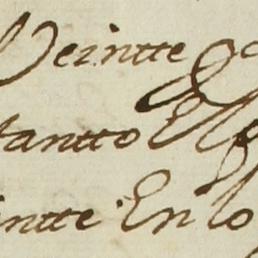 Veintte
tantto El
intte En lo